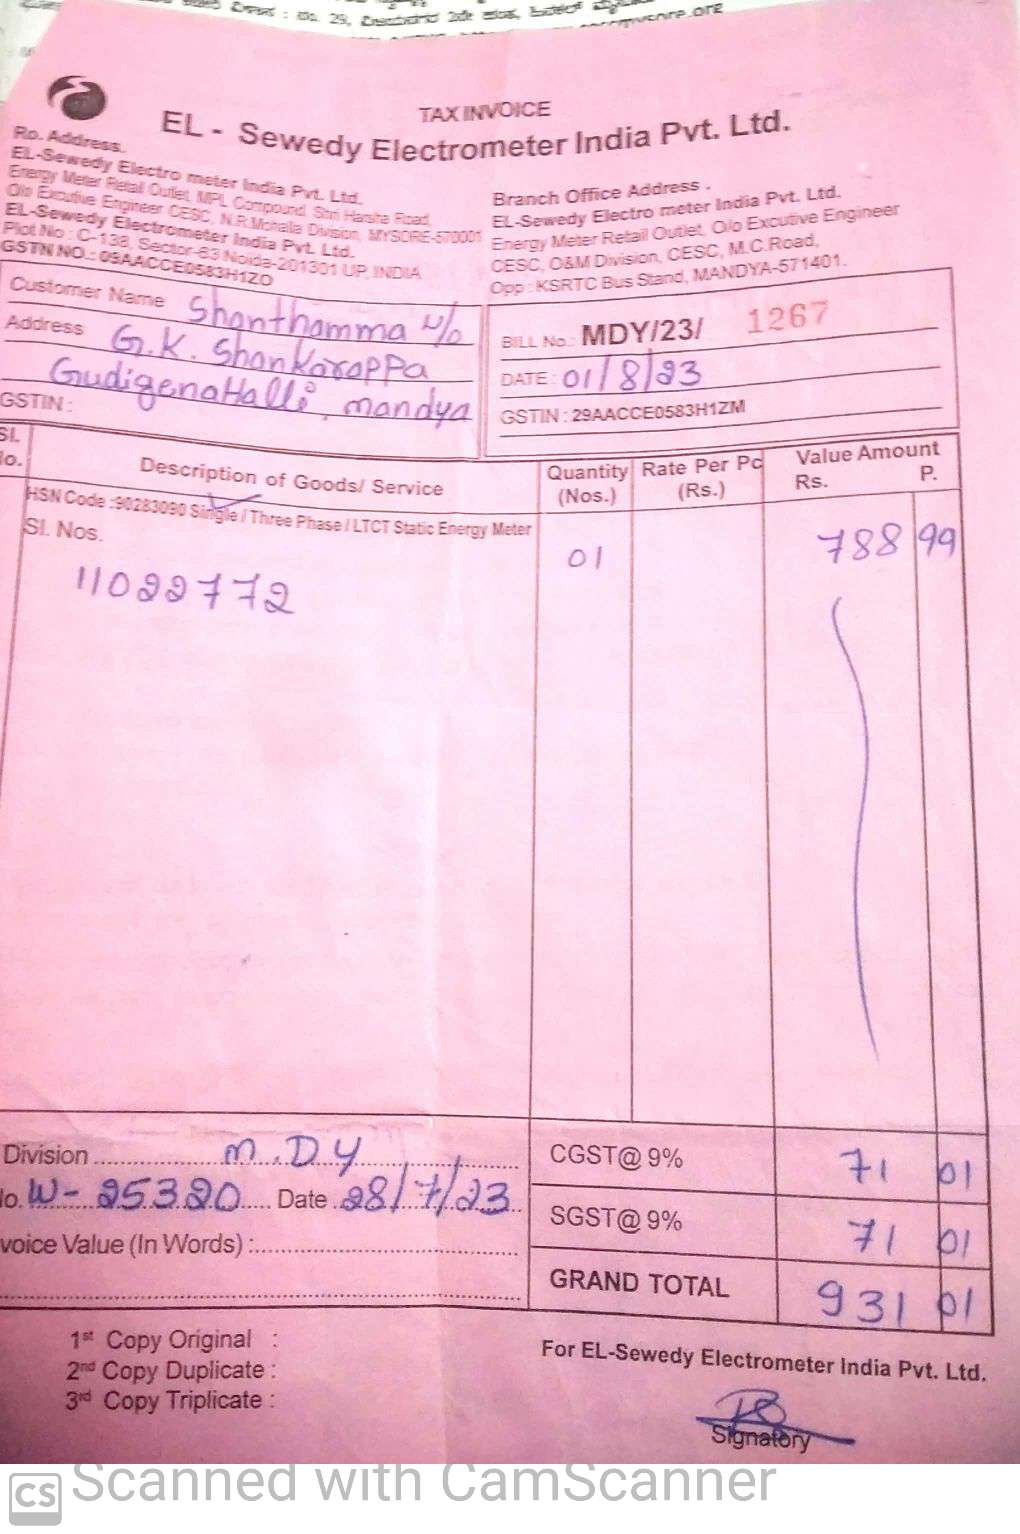 29,
TAX INVOICE
EL - Sewedy Electrometer India Pvt. Ltd.
Ro. Address.
EL-Sewedy Electro meter India Pvt. Ltd.
Energy Meter Retail Outlet, MPL Compound, Shri Harsha Road,
O/o Excutive Engineer CESC, N.R.Mohalla Division, MYSORE-570001
EL-Sewedy Electrometer India Pvt. Ltd.
Plot No : C-138, Sector-63 Noida-201301 UP, INDIA
GSTN NO.: 09AACCE0583H1ZO
Branch Office Address .
EL-Sewedy Electro meter India Pvt. Ltd.
Energy Meter Retail Outlet, O/o Excutive Engineer
CESC, O&M Division, CESC, M.C.Road,
Opp : KSRTC Bus Stand, MANDYA-571401.
Customer Name Shanthamma w/o
Address G.K. Shankarappa
Gudigenahalli, mandya
GSTIN :
BILL No.: MDY/23/ 1267
DATE : 01/8/23
GSTIN : 29AACCE0583H1ZM
Sl. No. Description of Goods/ Service Quantity (Nos.) Rate Per Pc (Rs.) Value Amount Rs. P.
HSN Code :90283090 Single / Three Phase / LTCT Static Energy Meter
Sl. Nos.
11022772 01 788 99
Division M.D.Y
No. W- 25320 Date 28/7/23
voice Value (In Words) :
CGST@ 9% 71 01
SGST@ 9% 71 01
GRAND TOTAL 931 01
1st Copy Original :
2nd Copy Duplicate :
3rd Copy Triplicate :
For EL-Sewedy Electrometer India Pvt. Ltd.
Signatory
CS Scanned with CamScanner